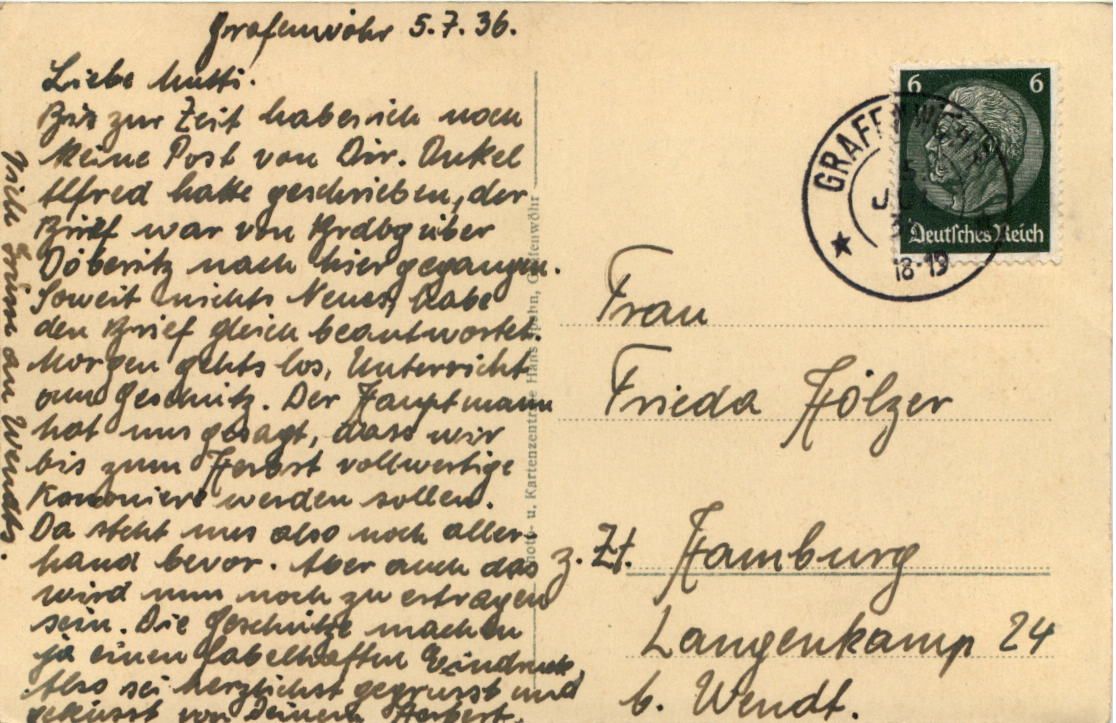 Grafenwöhr 5.7.36.
Liebe Mutti.
Bis zur Zeit habe ich noch
keine Post von Dir. Onkel
Alfred hatte geschrieben, der
Brief war von Brdbg über
Döberitz nach hier gegangen.
Soweit nichts Neues, habe
den Brief gleich beantwortet.
Morgen gehts los, Unterricht
am Geschütz. Der Hauptmann
hat uns gesagt, dass wir
bis zum Herbst vollwertige
Kanoniere werden sollen.
Da steht uns also noch aller-
hand bevor. Aber auch das
wird nun noch zu ertragen
sein. Die Geschütze machen
ja einen fabelhaften Eindruck.
Also sei herzlichst gegrüsst und
geküsst von Deinem Herbert.
Viele Grüsse an Wendts.
Photo- u. Kartenzentrale Hans Spahn, Grafenwöhr
6 6
Deutsches Reich
GRAFENWÖHR
5
JUL
18-19
Frau
Frieda Hölzer
z. Zt. Hamburg
Langenkamp 24
b. Wendt.